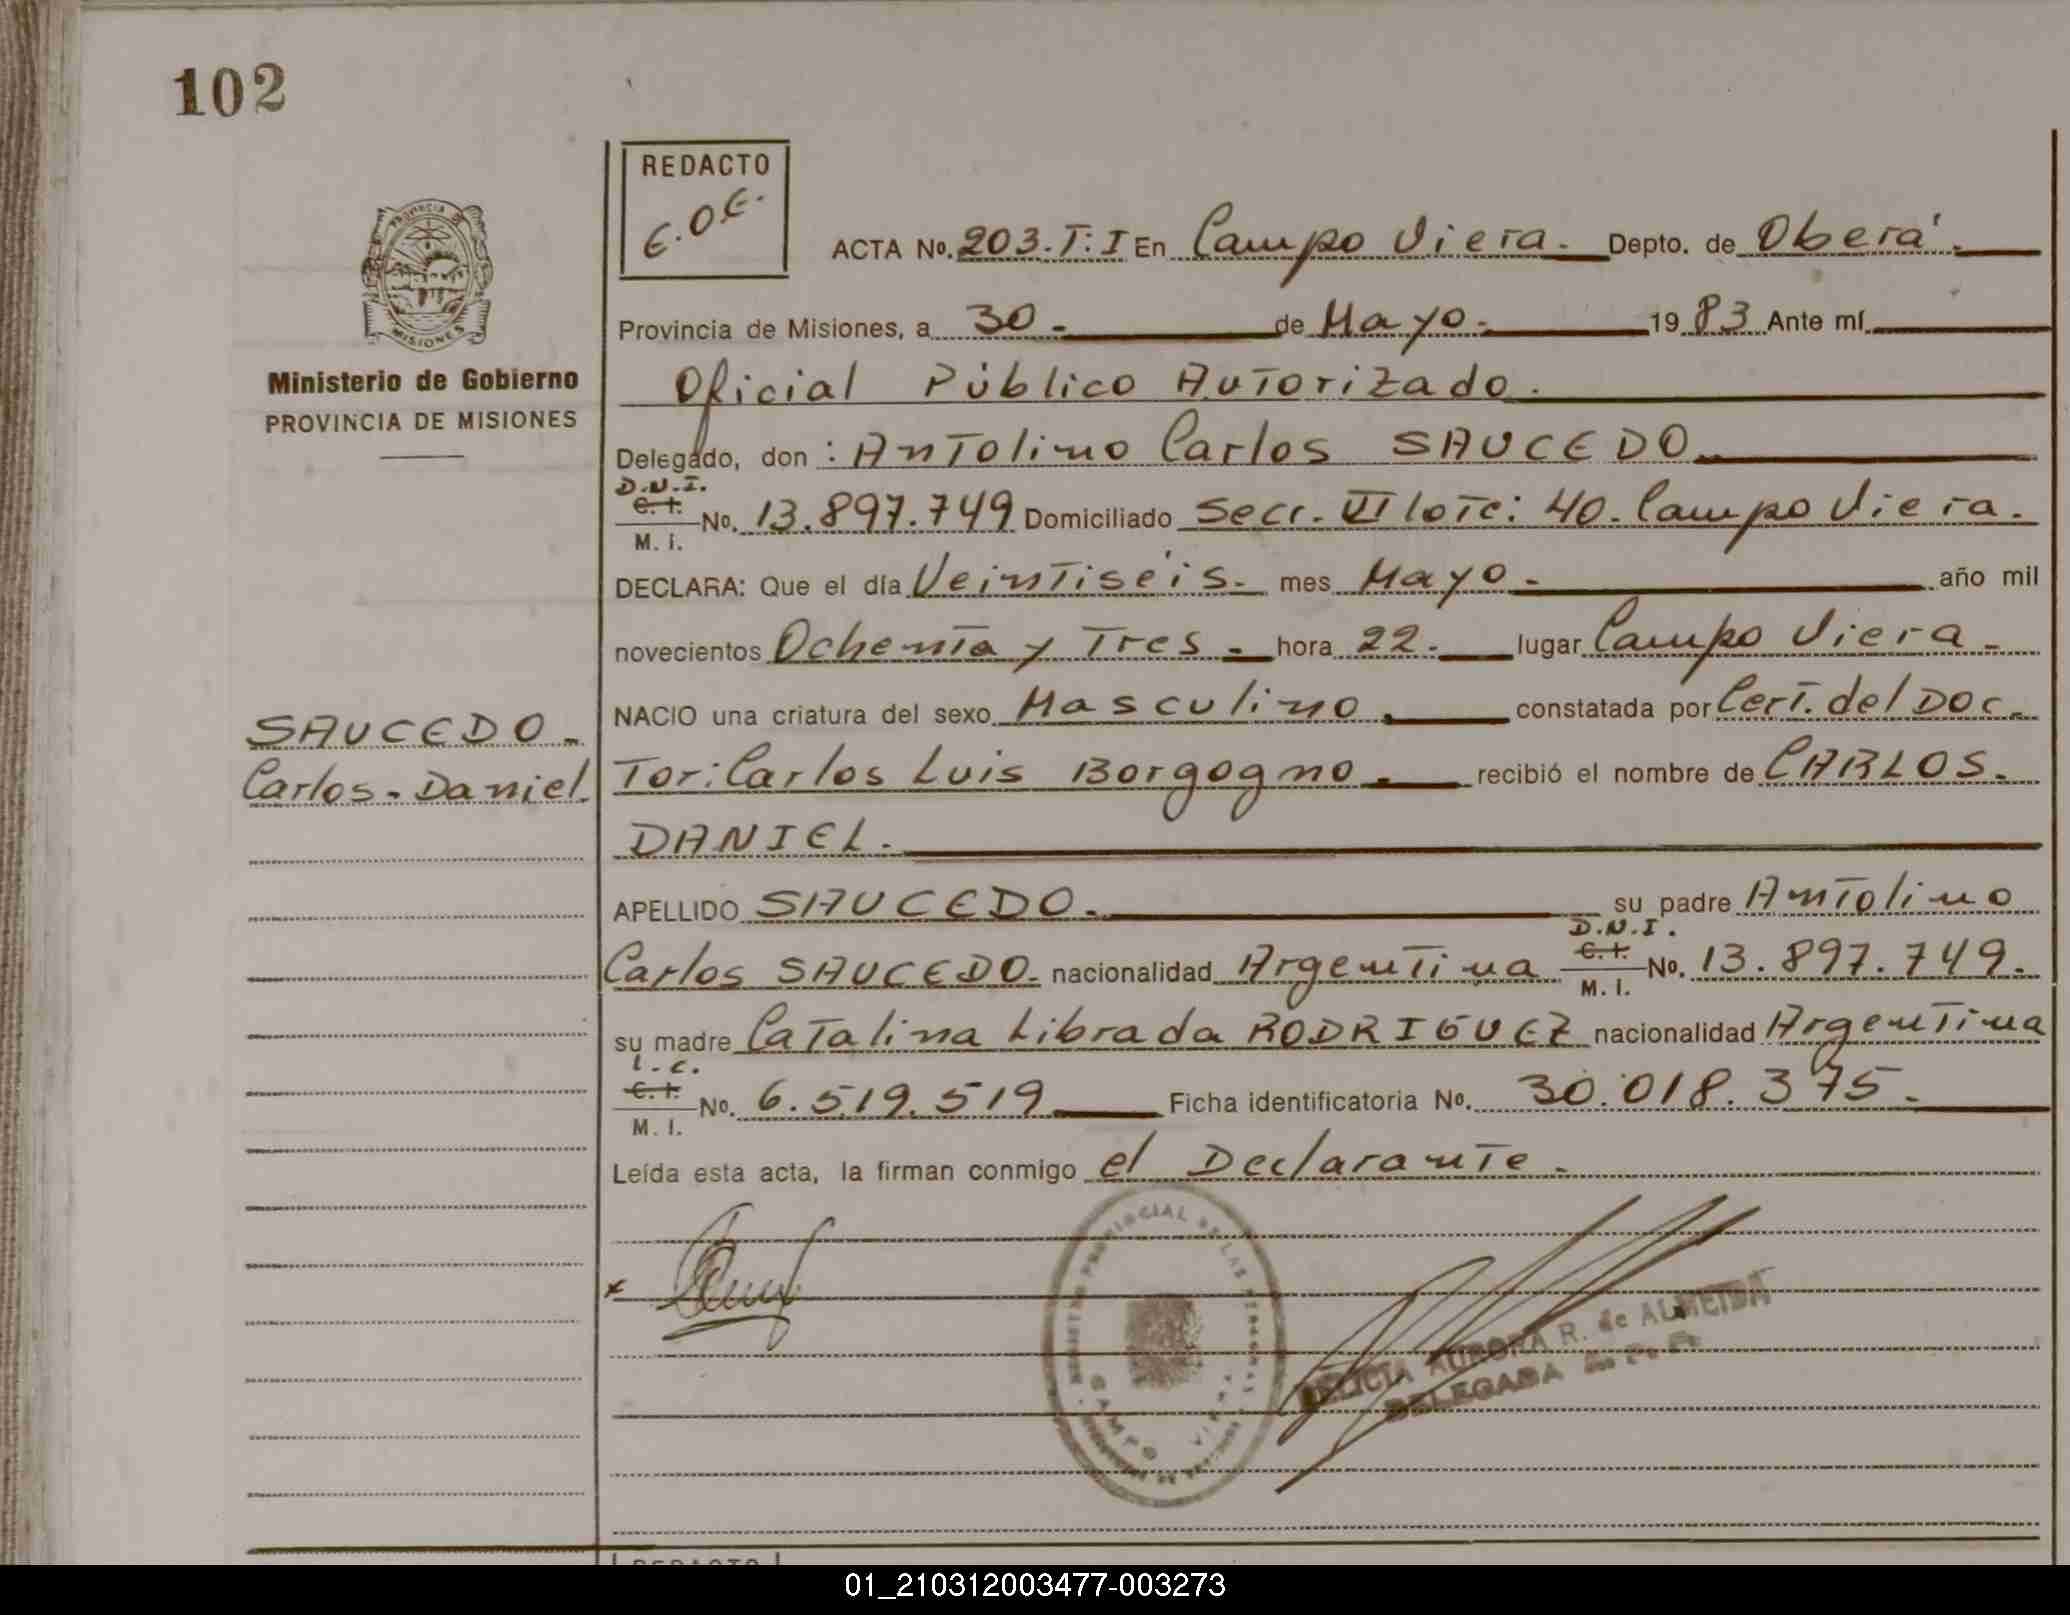 102
REDACTO
E.O.E.
ACTA No. 203.T:I En Campo Viera. Depto. de Oberá.
PROVINCIA DE
MISIONES
Provincia de Misiones, a 30. de Mayo. 19 83 Ante mí
Ministerio de Gobierno
PROVINCIA DE MISIONES
Oficial Público Autorizado.
Delegado, don : Antolino Carlos SAUCEDO.
D.N.I.
C. I.
M. I.
No. 13.897.749 Domiciliado Secc. VI lote: 40. Campo Viera.
DECLARA: Que el día Veintiséis. mes Mayo. año mil
novecientos Ochenta y Tres. hora 22. lugar Campo Viera.
NACIO una criatura del sexo Masculino. constatada por Cert. del Doc-
SAUCEDO.
Carlos-Daniel
Tor: Carlos Luis Borgogno. recibió el nombre de CARLOS.
DANIEL.
APELLIDO SAUCEDO. su padre Antolino
Carlos SAUCEDO. nacionalidad Argentina
D.N.I.
C. I.
M. I.
No. 13.897.749.
su madre Catalina Librada RODRIGUEZ nacionalidad Argentina
L.C.
C. I.
M. I.
No. 6.519.519 Ficha identificatoria No. 30.018.375.
Leída esta acta, la firman conmigo el Declarante.
x
REGISTRO PROVINCIAL DE LAS PERSONAS
CAMPO VIERA
FELICIA AURORA R. de ALMEIDA
DELEGADA
REDACTO
01_210312003477-003273